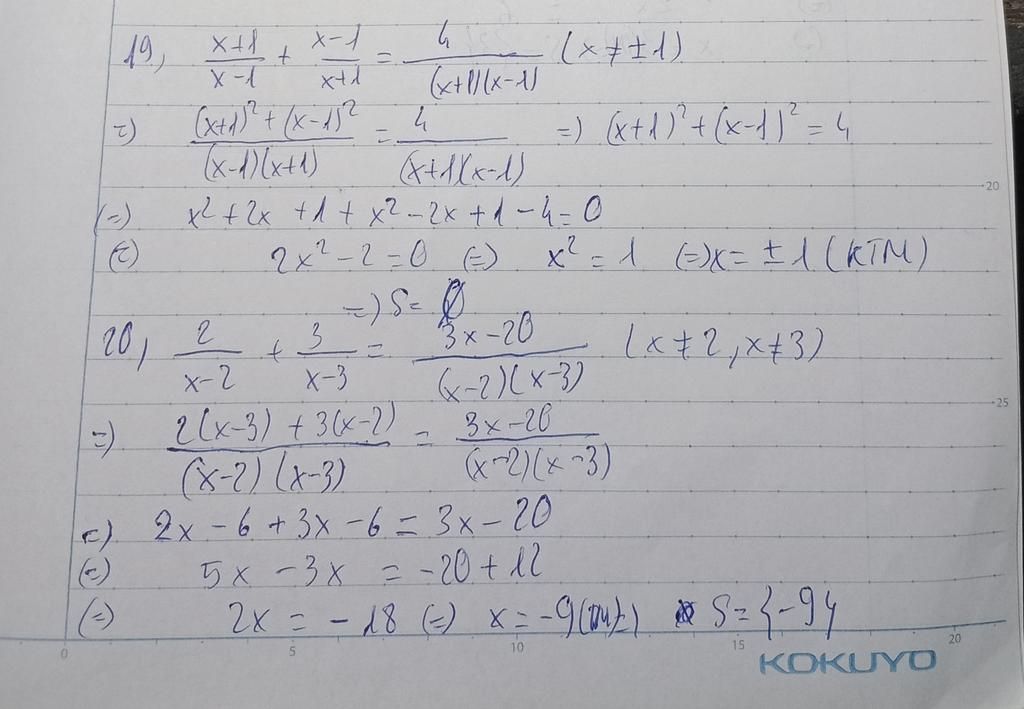 19, (x+1)/(x-1) + (x-1)/(x+1) = 4/((x+1)(x-1)) (x ≠ ±1)
=) ((x+1)² + (x-1)²)/((x-1)(x+1)) = 4/((x+1)(x-1)) =) (x+1)² + (x-1)² = 4
(=) x² + 2x + 1 + x² - 2x + 1 - 4 = 0
(=) 2x² - 2 = 0 (=) x² = 1 (=) x = ±1 (KTM)
=) S = ∅
20, 2/(x-2) + 3/(x-3) = (3x-20)/((x-2)(x-3)) (x ≠ 2, x ≠ 3)
=) (2(x-3) + 3(x-2))/((x-2)(x-3)) = (3x-20)/((x-2)(x-3))
=) 2x - 6 + 3x - 6 = 3x - 20
(=) 5x - 3x = -20 + 12
(=) 2x = -18 (=) x = -9 S = {-9}
0 5 10 15 20
KOKUYO
20
25